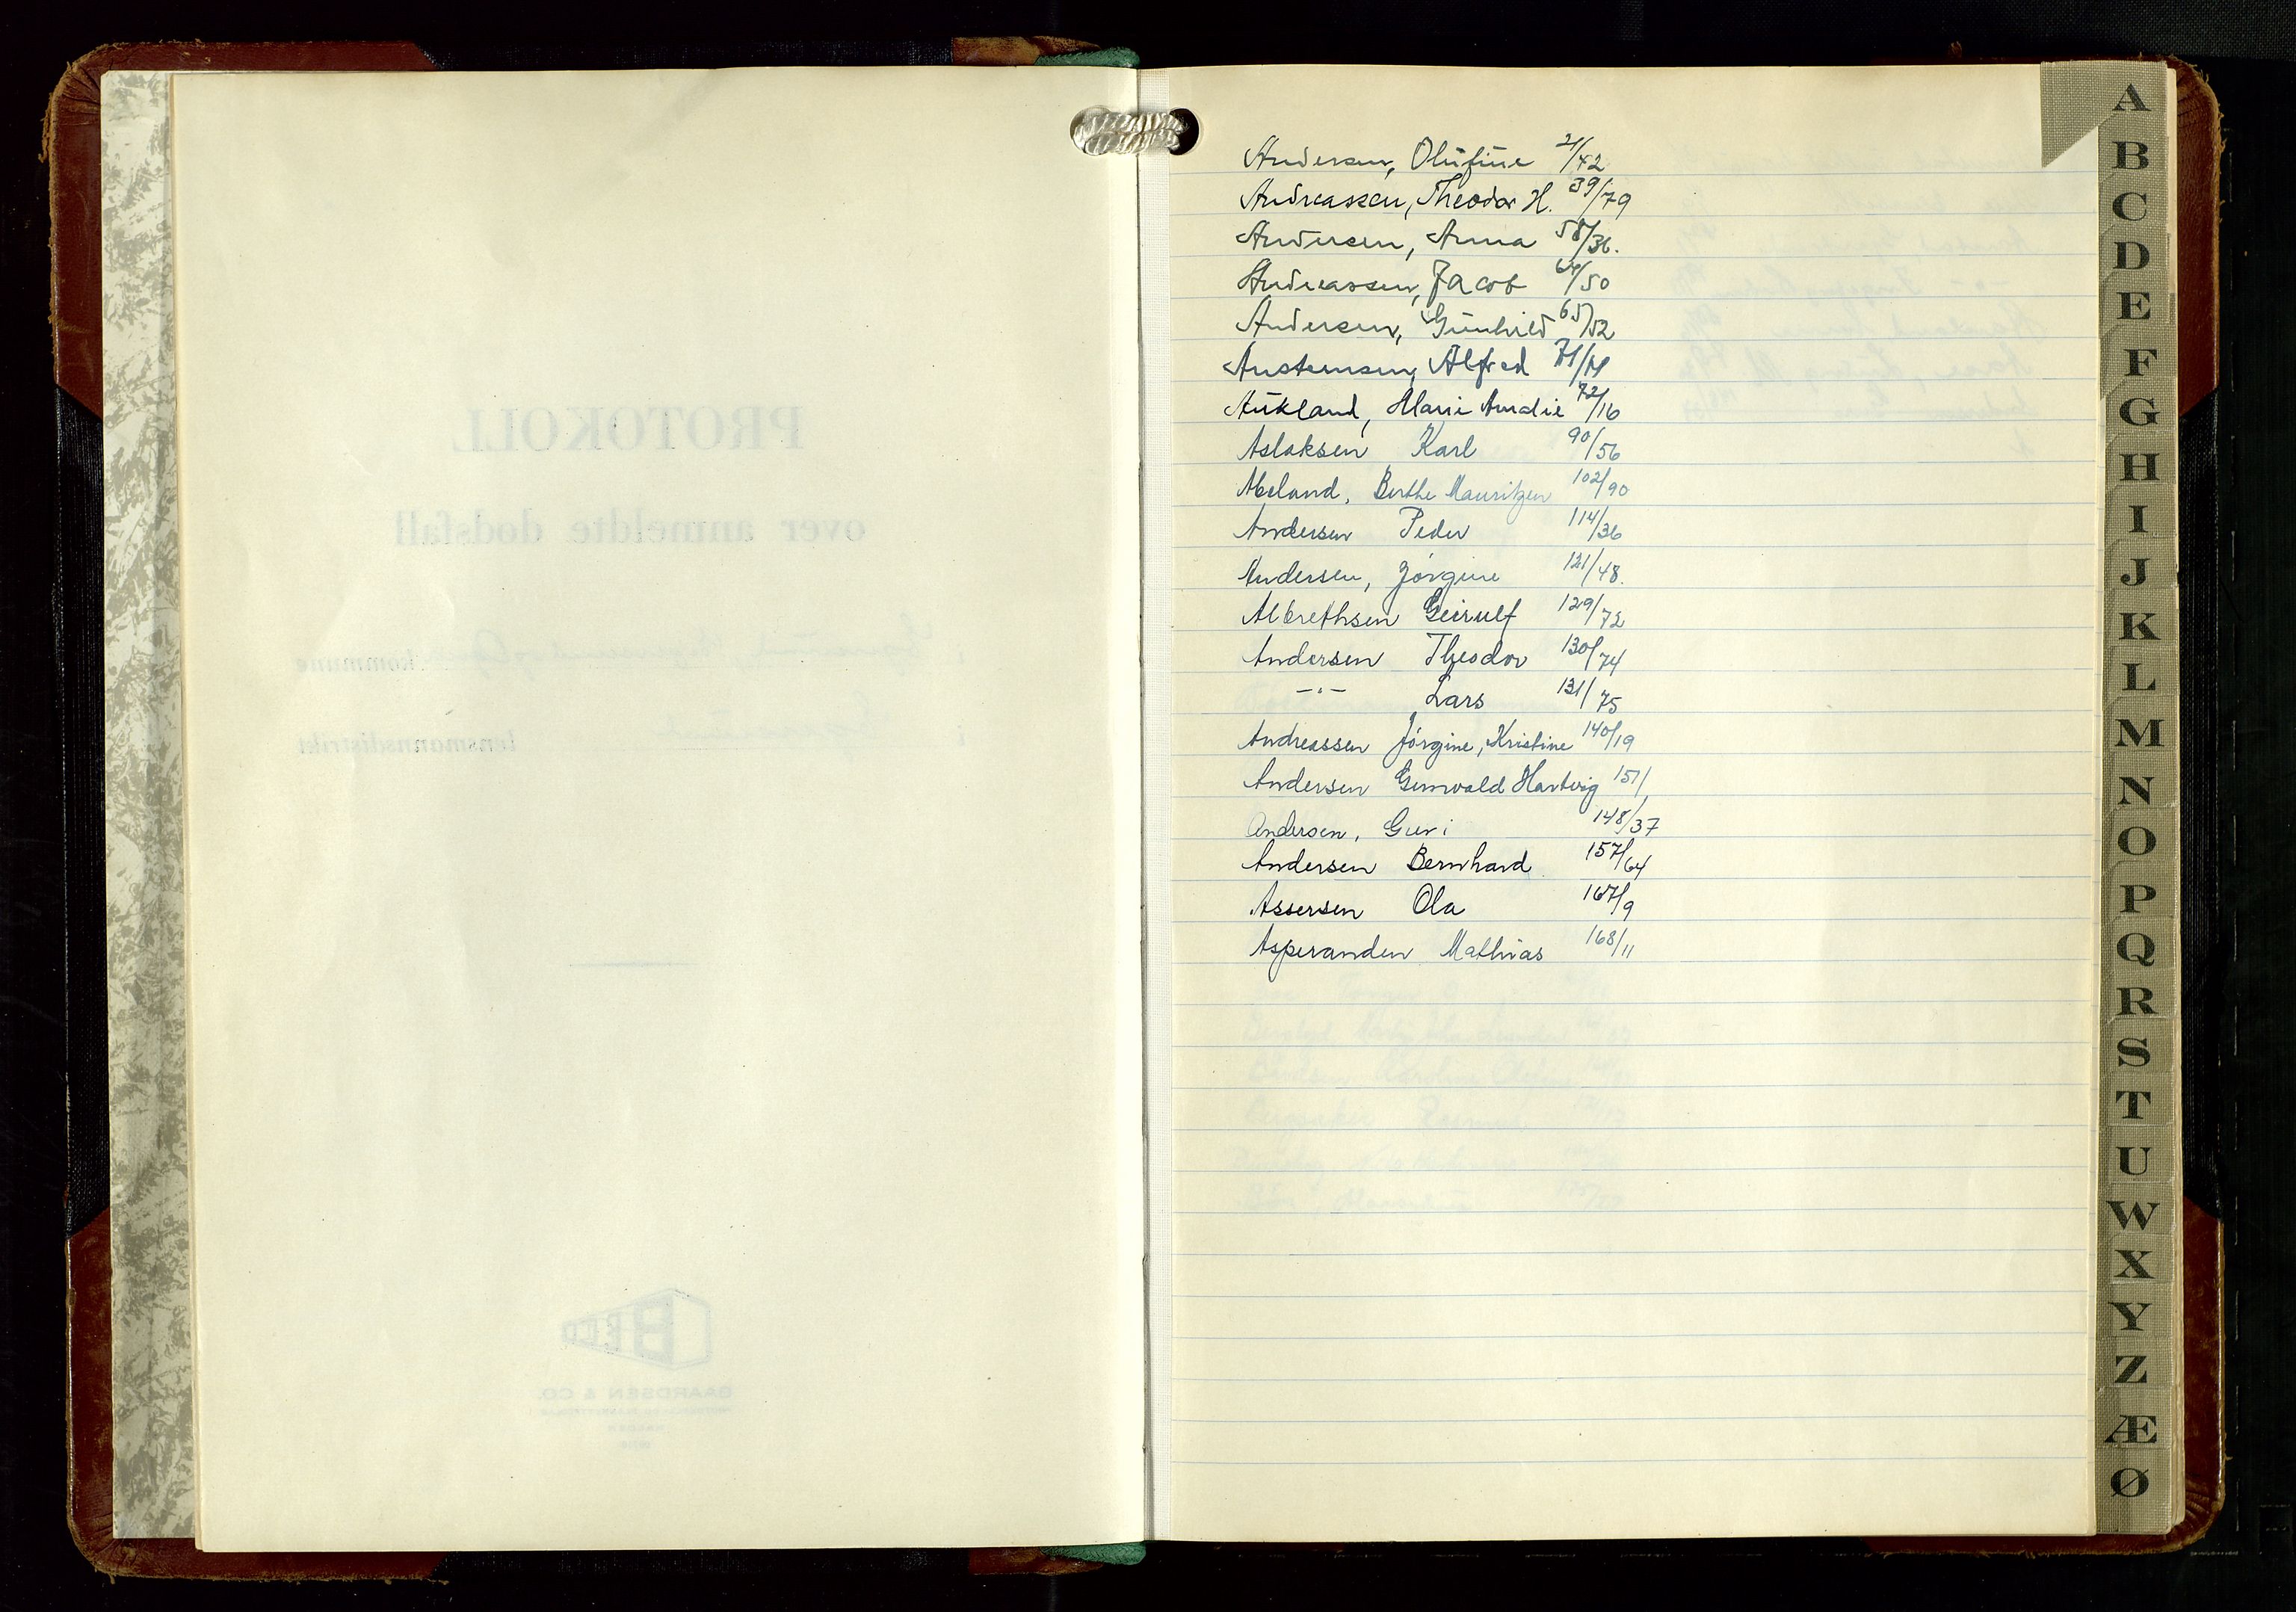 PROTOKOLL
over anmeldte dødsfall
i kommune
i lensmannsdistrikt
Andersen, Olufine 21/42
Andreassen, Theodor H. 39/79
Andersen, Anna 58/36.
Andreassen, Jacob 64/50
Andersen, Gunhild 65/52
Austensen, Alfred 71/14
Aukland, Marie Amalie 72/16
Aslaksen Karl 90/56
Abeland, Berthe Mauritzen 102/90
Andersen Peder 114/36
Andersen, Jørgine 121/48.
Albrethsen Geirulf 129/72
Andersen Theodor 130/74
-"- Lars 131/75
Andreassen Jørgine, Kristine 140/19
Andersen Gunvald Hartvig 151/
Andersen, Guri 148/37
Andersen Bernhard 157/64
Assersen Ola 167/9
Asperanden Mathias 168/11
A
B
C
D
E
F
G
H
I
J
K
L
M
N
O
P
Q
R
S
T
U
W
X
Y
Z
Æ
Ø